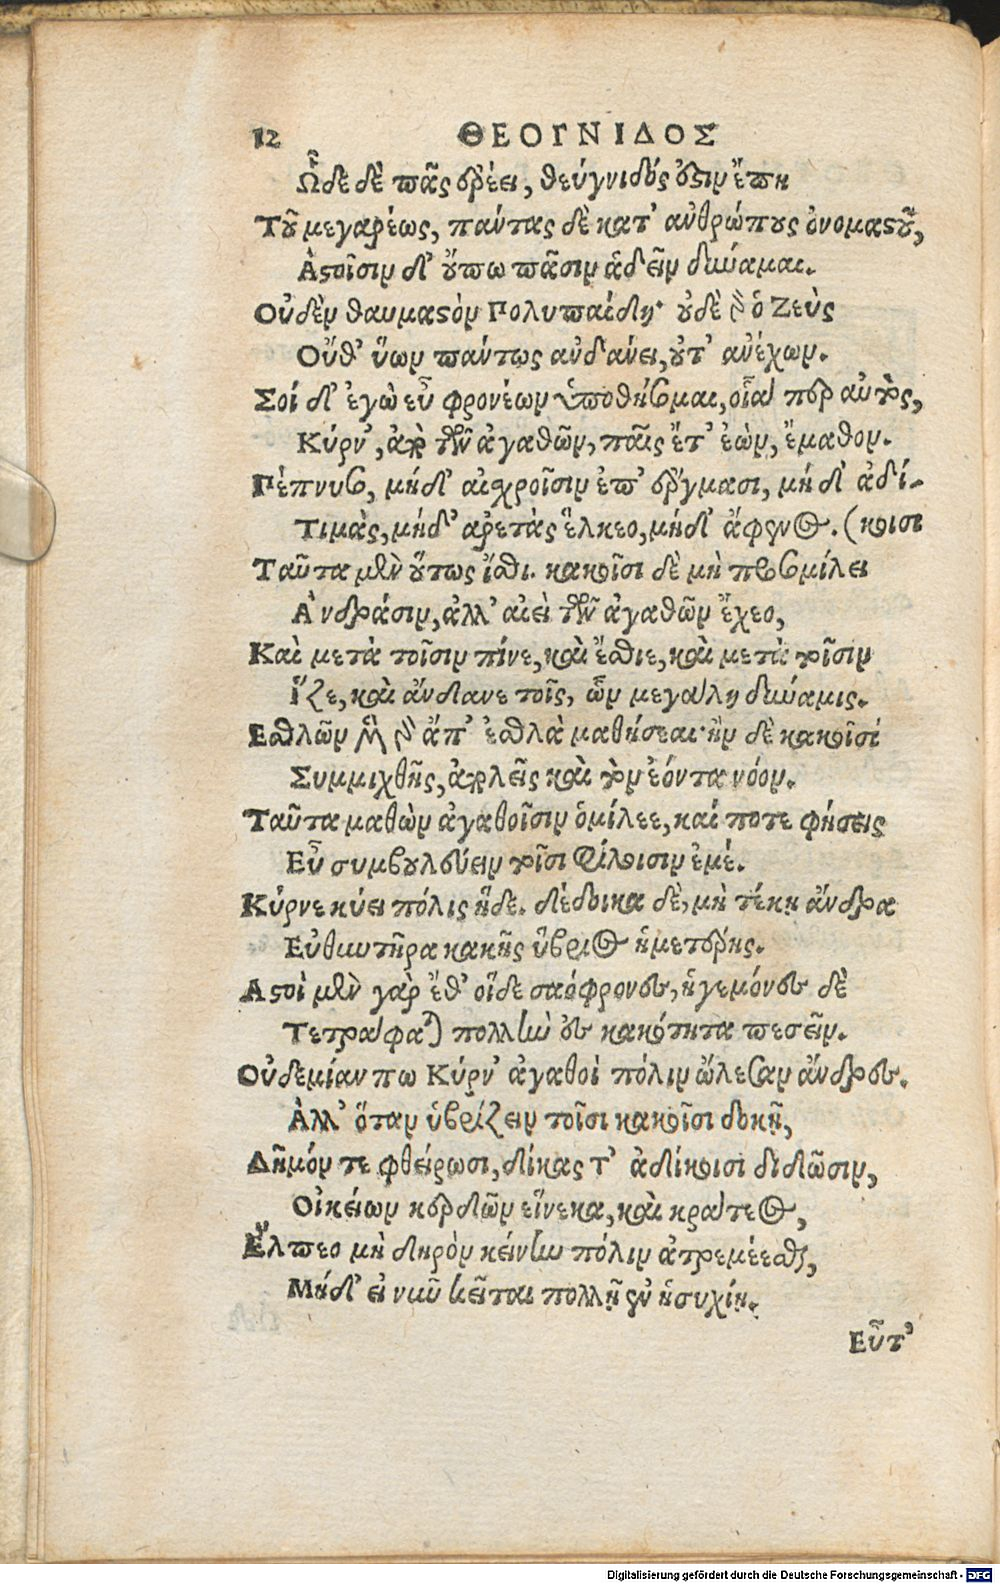 12 ΘΕΟΓΝΙΔΟΣ
Ὧδε δὲ πᾶς ἐρέει, θεύγνιδός ἐστιν ἔπη
Τοῦ μεγαρέως, πάντας δὲ κατ' ἀνθρώπους ὀνομαστοῦ,
Ἀστοῖσιν δ' οὔπω πᾶσιν ἁδεῖν δύναμαι.
Οὐδὲν θαυμαστὸν Πολυπαίδη· οὐδὲ γὰρ ὁ Ζεὺς
Οὔθ' ὕων πάντας ἁνδάνει, οὔτ' ἀνέχων.
Σοί δ' ἐγὼ εὖ φρονέων ὑποθήσομαι, οἷά περ αὐτὸς,
Κύρν', ἀπὸ τῶν ἀγαθῶν, παῖς ἔτ' ἐὼν, ἔμαθον.
Πέπνυσο, μήδ' αἰσχροῖσιν ἐπ' ἔργμασι, μήδ' ἀδί-
Τιμὰς, μήδ' ἀρετὰς ἕλκεο, μήδ' ἄφενος. (κοισι
Ταῦτα μὲν οὕτως ἴσθι. κακοῖσι δὲ μὴ προσομίλει
Ἀνδράσιν, ἀλλ' αἰεὶ τῶν ἀγαθῶν ἔχεο,
Καὶ μετὰ τοῖσιν πίνε, καὶ ἔσθιε, καὶ μετὰ τοῖσιν
ἵζε, καὶ ἅνδανε τοῖς, ὧν μεγάλη δύναμις.
Ἐσθλῶν μὲν γὰρ ἄπ' ἐσθλὰ μαθήσεαι· ἢν δὲ κακοῖσί
Συμμιχθῇς, ἀπολεῖς καὶ τὸν ἐόντα νόον.
Ταῦτα μαθὼν ἀγαθοῖσιν ὁμίλεε, καί ποτε φήσεις
Εὖ συμβουλεύειν τοῖσι φίλοισιν ἐμέ.
Κύρνε κύει πόλις ἥδε. δέδοικα δὲ, μὴ τέκῃ ἄνδρα
Εὐθυντῆρα κακῆς ὕβριος ἡμετέρης.
Ἀστοὶ μὲν γὰρ ἔθ' οἵδε σαόφρονες, ἡγεμόνες δὲ
Τετράφαται πολλὴν ἐς κακότητα πεσεῖν.
Οὐδεμίαν πω Κύρν' ἀγαθοὶ πόλιν ὤλεσαν ἄνδρες.
Ἀλλ' ὅταν ὑβρίζειν τοῖσι κακοῖσι δοκῇ,
Δῆμόν τε φθείρωσι, δίκας τ' ἀδίκοισι διδῶσιν,
Οἰκείων κερδῶν εἵνεκα, καὶ κράτεος,
Ἔλπεο μὴ δηρὸν κείνην πόλιν ἀτρεμέεσθαι,
Μήδ' εἰ νῦν κεῖται πολλῇ ἐν ἡσυχίῃ.
Εὖτ'
Digitalisierung gefördert durch die Deutsche Forschungsgemeinschaft - DFG